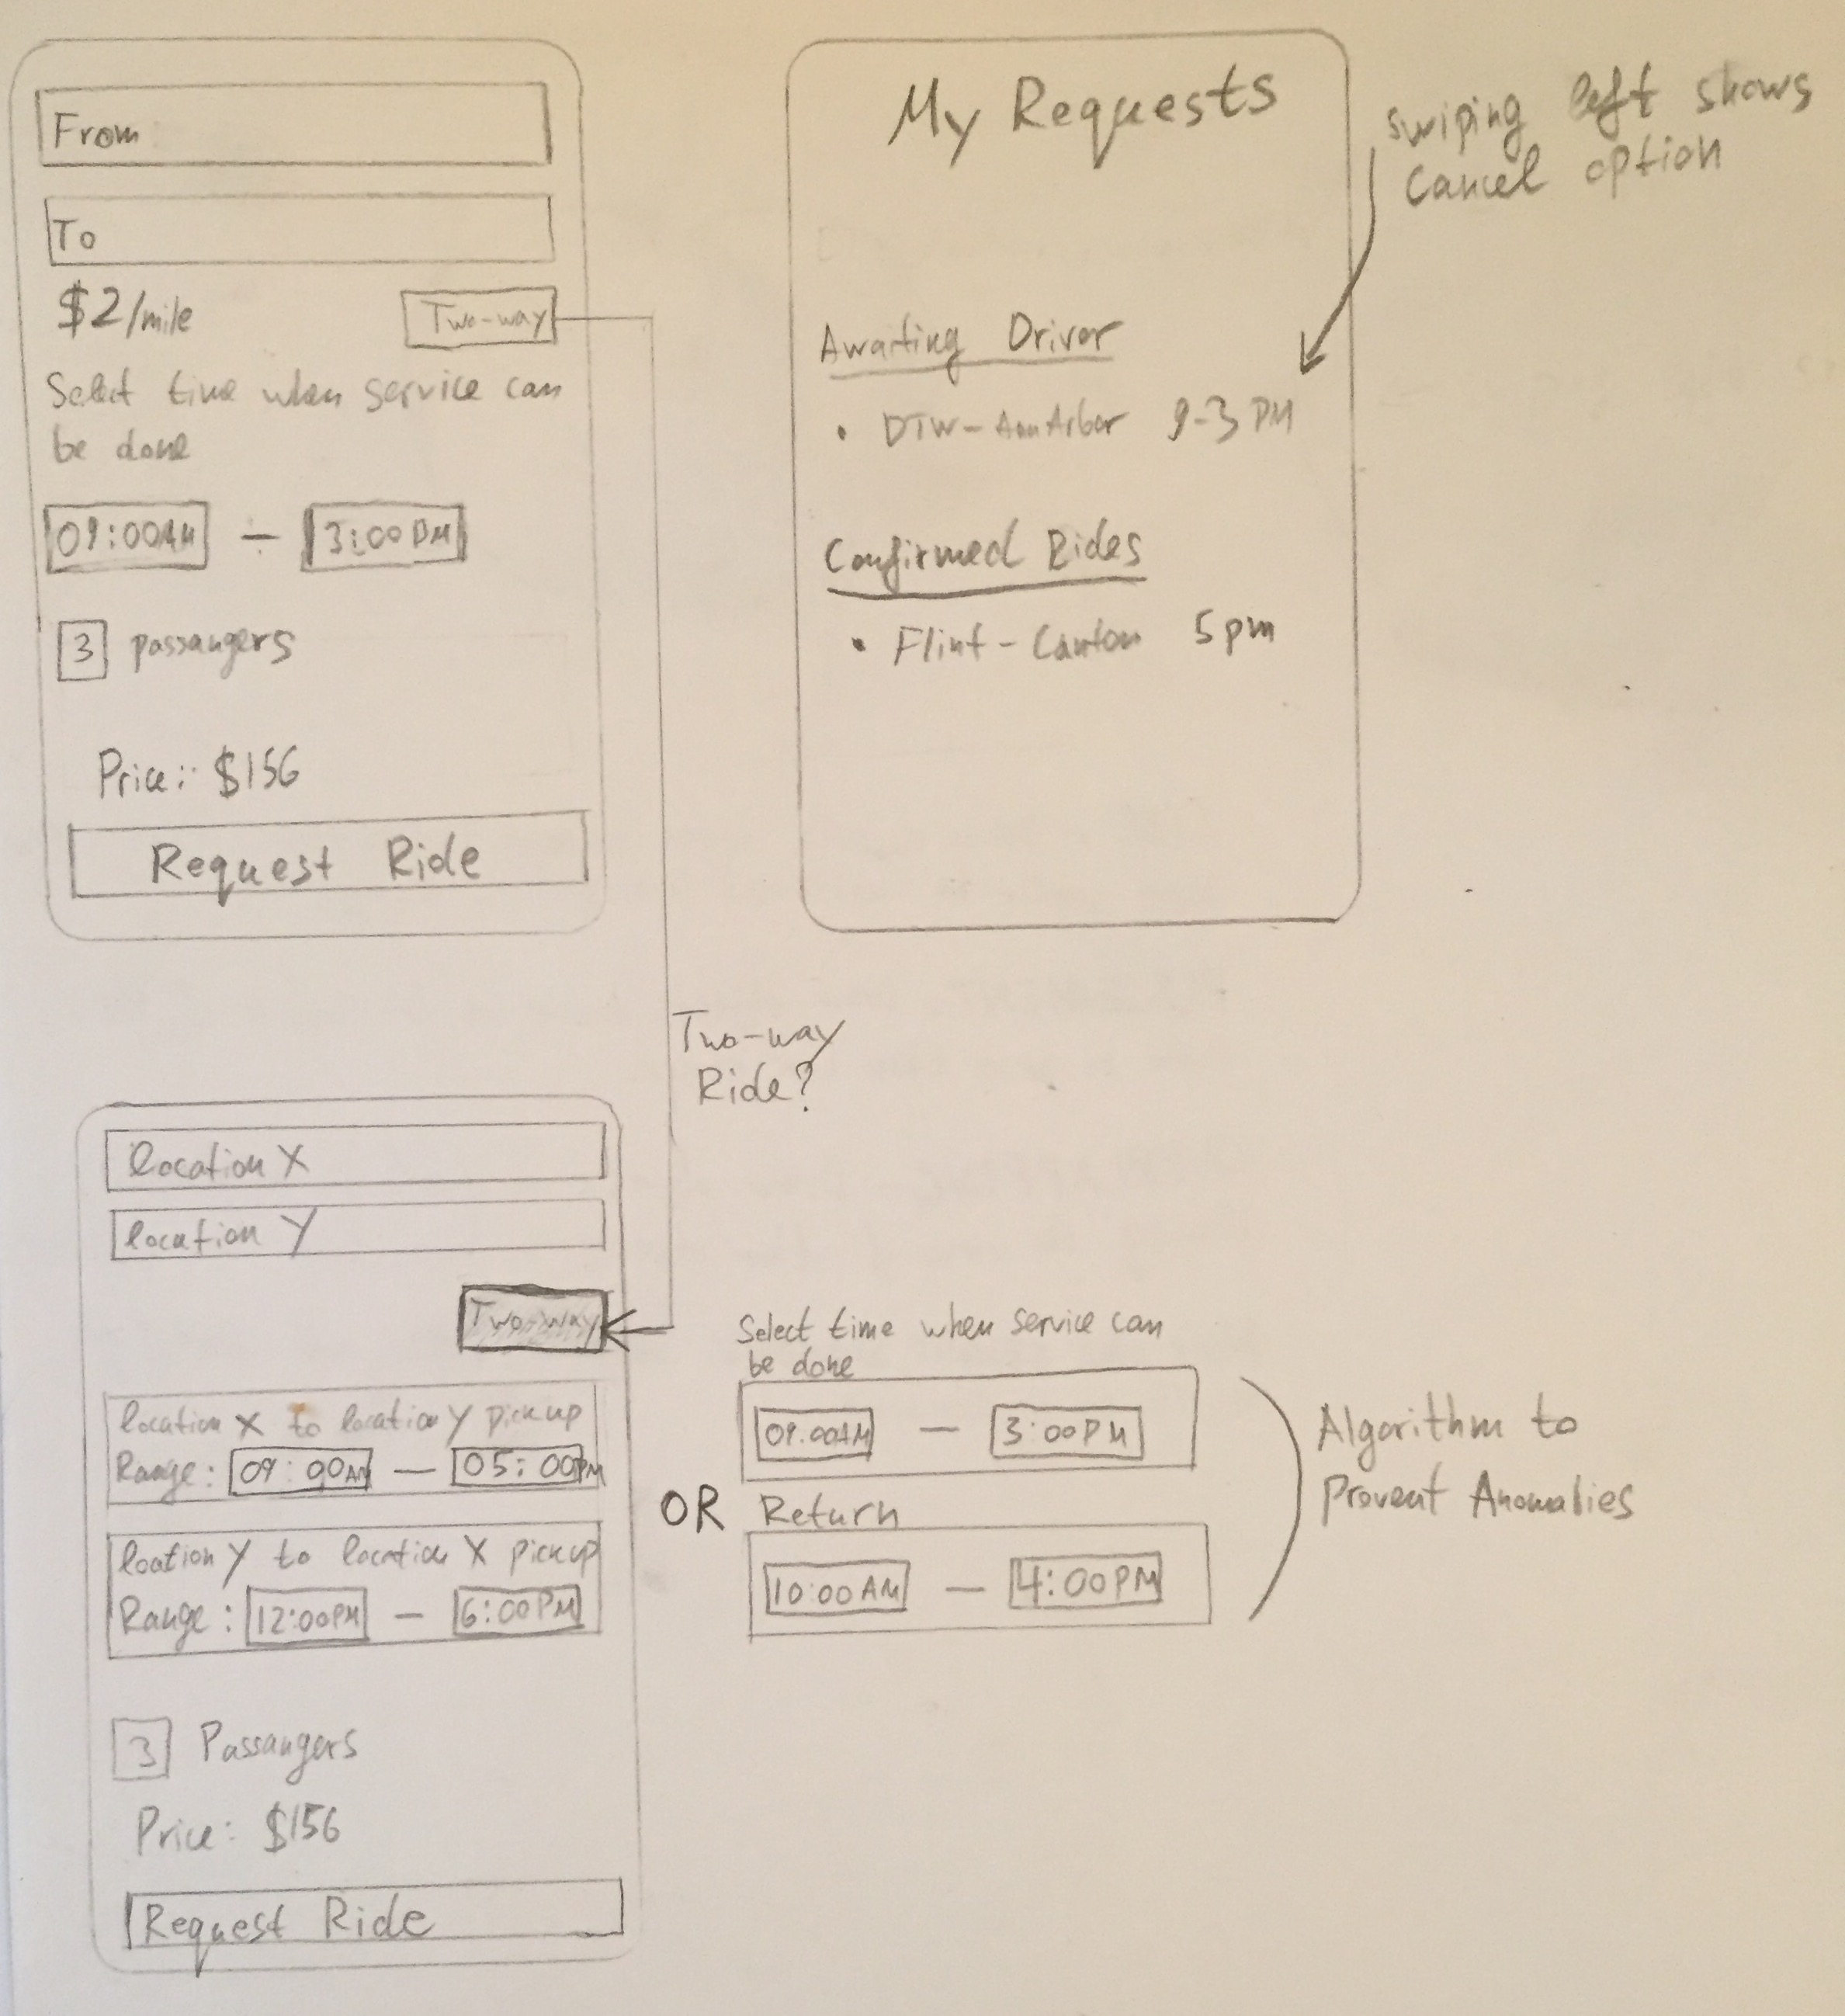 From
To
$2/mile
Two-way
Select time when service can
be done
09:00AM — 3:00PM
3 passangers
Price: $156
Request Ride
My Requests
Awaiting Driver
• DTW-AnnArbor 9-3 PM
Confirmed Rides
• Flint-Canton 5pm
swiping left shows
Cancel option
Two-way
Ride?
location X
location Y
Two-way
location X to location Y pickup
Range: 09:00AM — 05:00PM
loation Y to location X pickup
Range: 12:00PM — 6:00PM
3 Passangers
Price: $156
Request Ride
OR
Select time when service can
be done
09:00AM — 3:00PM
Return
10:00AM — 4:00PM
Algorithm to
Prevent Anomalies